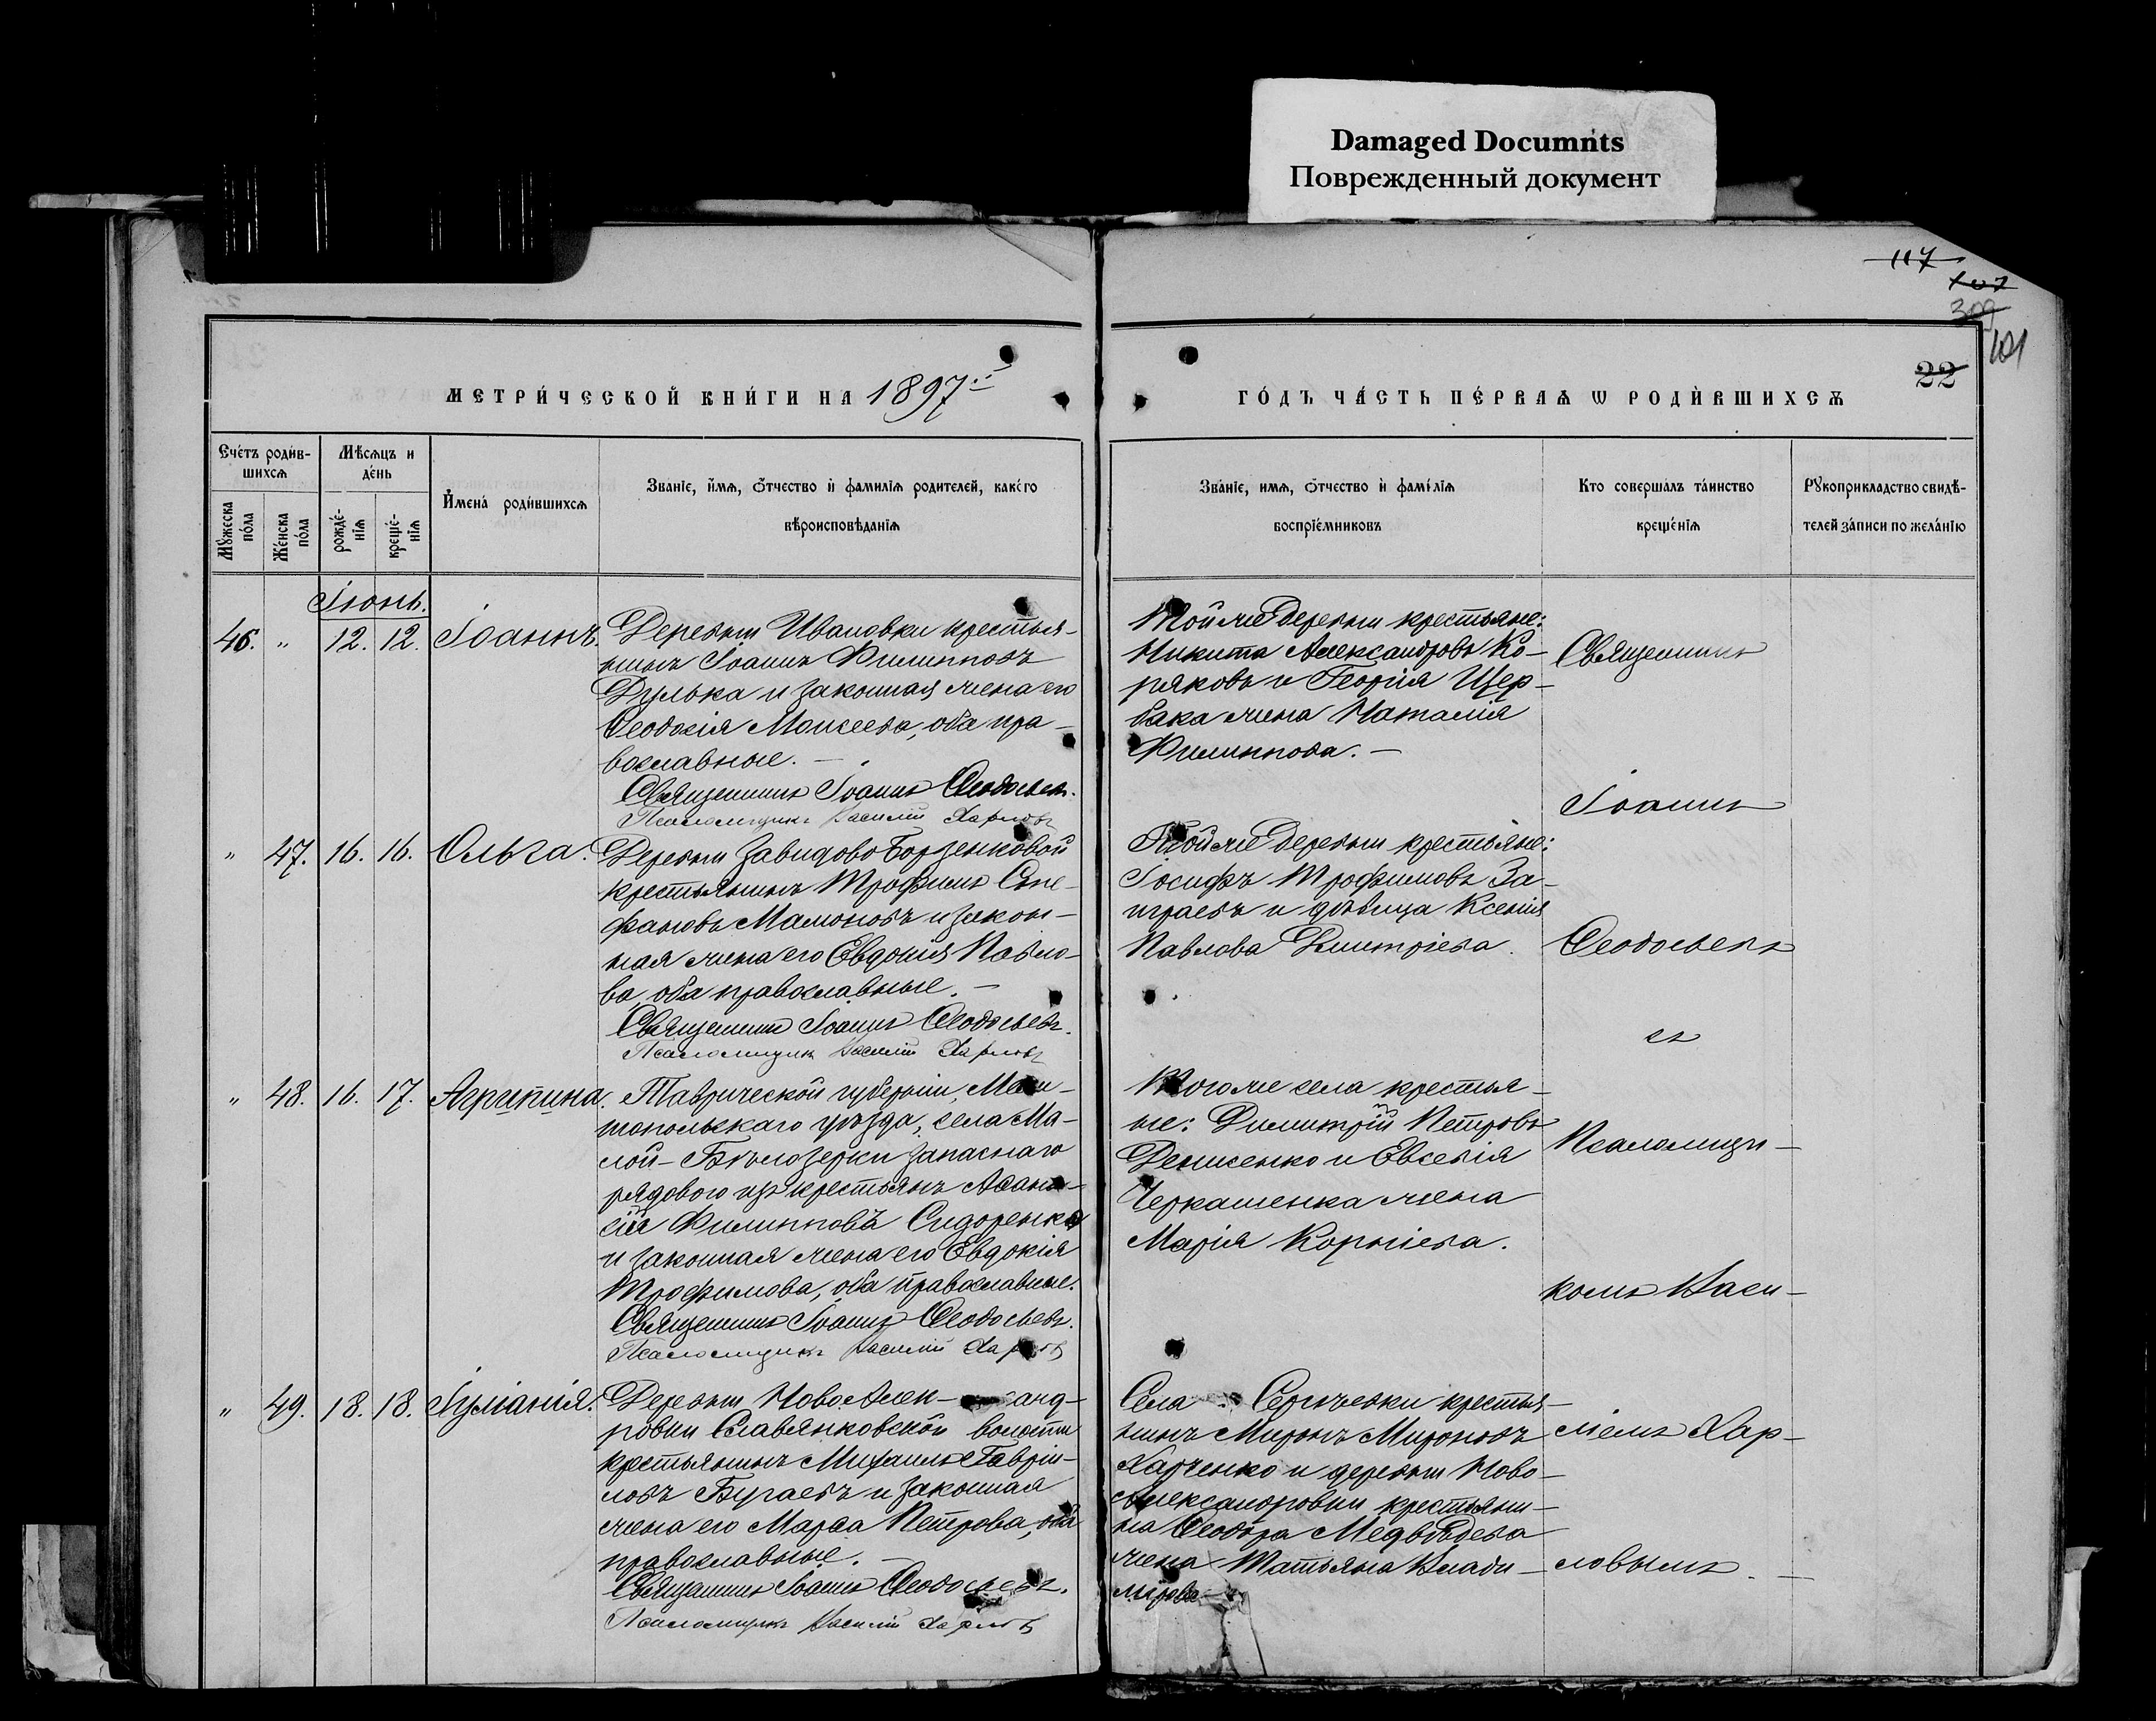 Damaged Documnts
Поврежденный документ
117
107
309
101
22
МЕТРИ́ЧЕСКОЙ КНИ́ГИ НА 1897
ГО́ДЪ ЧА́СТЬ ПЕ́РВАѦ Ѡ РОДИ́ВШИХСѦ
Сче́тъ роди́в-
шихсѧ
Мꙋ́жеска по́ла
Же́нска по́ла
Мѣ́сѧцъ и
де́нь
рожде́-
нїѧ
креще́-
нїѧ
И҆мена̀ роди́вшихсѧ
Зва́нїе, и҆́мѧ, ѻ҆́тчество и҆ фами́лїѧ родителей, како́гѡ
вѣроисповѣ́данїѧ
Зва́нїе, имѧ, ѻ҆́тчество и҆ фамі́лїѧ
воспрїе́мниковъ
Кто соверша́лъ та́инство
креще́нїѧ
Рꙋкоприкладство свидѣ́-
телей за́писи по жела́нїю
Іюнь.
46. " 12. 12. Іоаннъ.
Деревни Ивановки крестья-
нинъ Іоаннъ Филипповъ
Дулька и законная жена его
Ѳеодосія Моисеева, оба пра-
вославные. —
Священникъ Іоаннъ Ѳеодосьевъ.
Псаломщикъ Василій Харловъ
Той же деревни крестьяне:
Никита Александровъ Ко-
ряковъ и Георгія Щер-
бака жена Наталія
Филиппова. —
Священникъ
Іоаннъ
" 47. 16. 16. Ольга.
Деревни Завидово Борзенковой
крестьянинъ Трофимъ Сте-
фановъ Мамоновъ и закон-
ная жена его Евдокія Павло-
ва, оба православные. —
Священникъ Іоаннъ Ѳеодосьевъ.
Псаломщикъ Василій Харловъ
Той же деревни крестьяне:
Іосифъ Трофимовъ За-
играевъ и дѣвица Ксенія
Павлова Димитріева.
Ѳеодосьевъ
съ
" 48. 16. 17. Агрипина.
Таврической губерніи, Мели-
топольскаго уѣзда, села Ма-
лой-Бѣлозерки запаснаго
рядового изъ крестьянъ Аѳана-
сій Филипповъ Сидоренко
и законная жена его Евдокія
Трофимова, оба православные.
Священникъ Іоаннъ Ѳеодосьевъ.
Псаломщикъ Василій Харловъ
Того же села крестья-
не: Димитрій Петровъ
Денисенко и Евсевія
Черкашенка жена
Марія Корніева.
Псаломщи-
комъ Васи-
" 49. 18. 18. Іуліанія.
Деревни НовоАлек- санд-
ровки Славянковской волости
крестьянинъ Михаилъ Гаврiи-
ловъ Бугаевъ и законная
жена его Марѳа Петрова, оба
православные. —
Священникъ Іоаннъ Ѳеодосьевъ.
Псаломщикъ Василій Харловъ
Села Сергѣевки крестья-
нинъ Миронъ Мироновъ
Харченко и деревни Ново-
Александровки крестьяни-
на Ѳеодора Медвѣдева
жена Татьяна Влади-
мірова
ліемъ Хар-
ловымъ. —